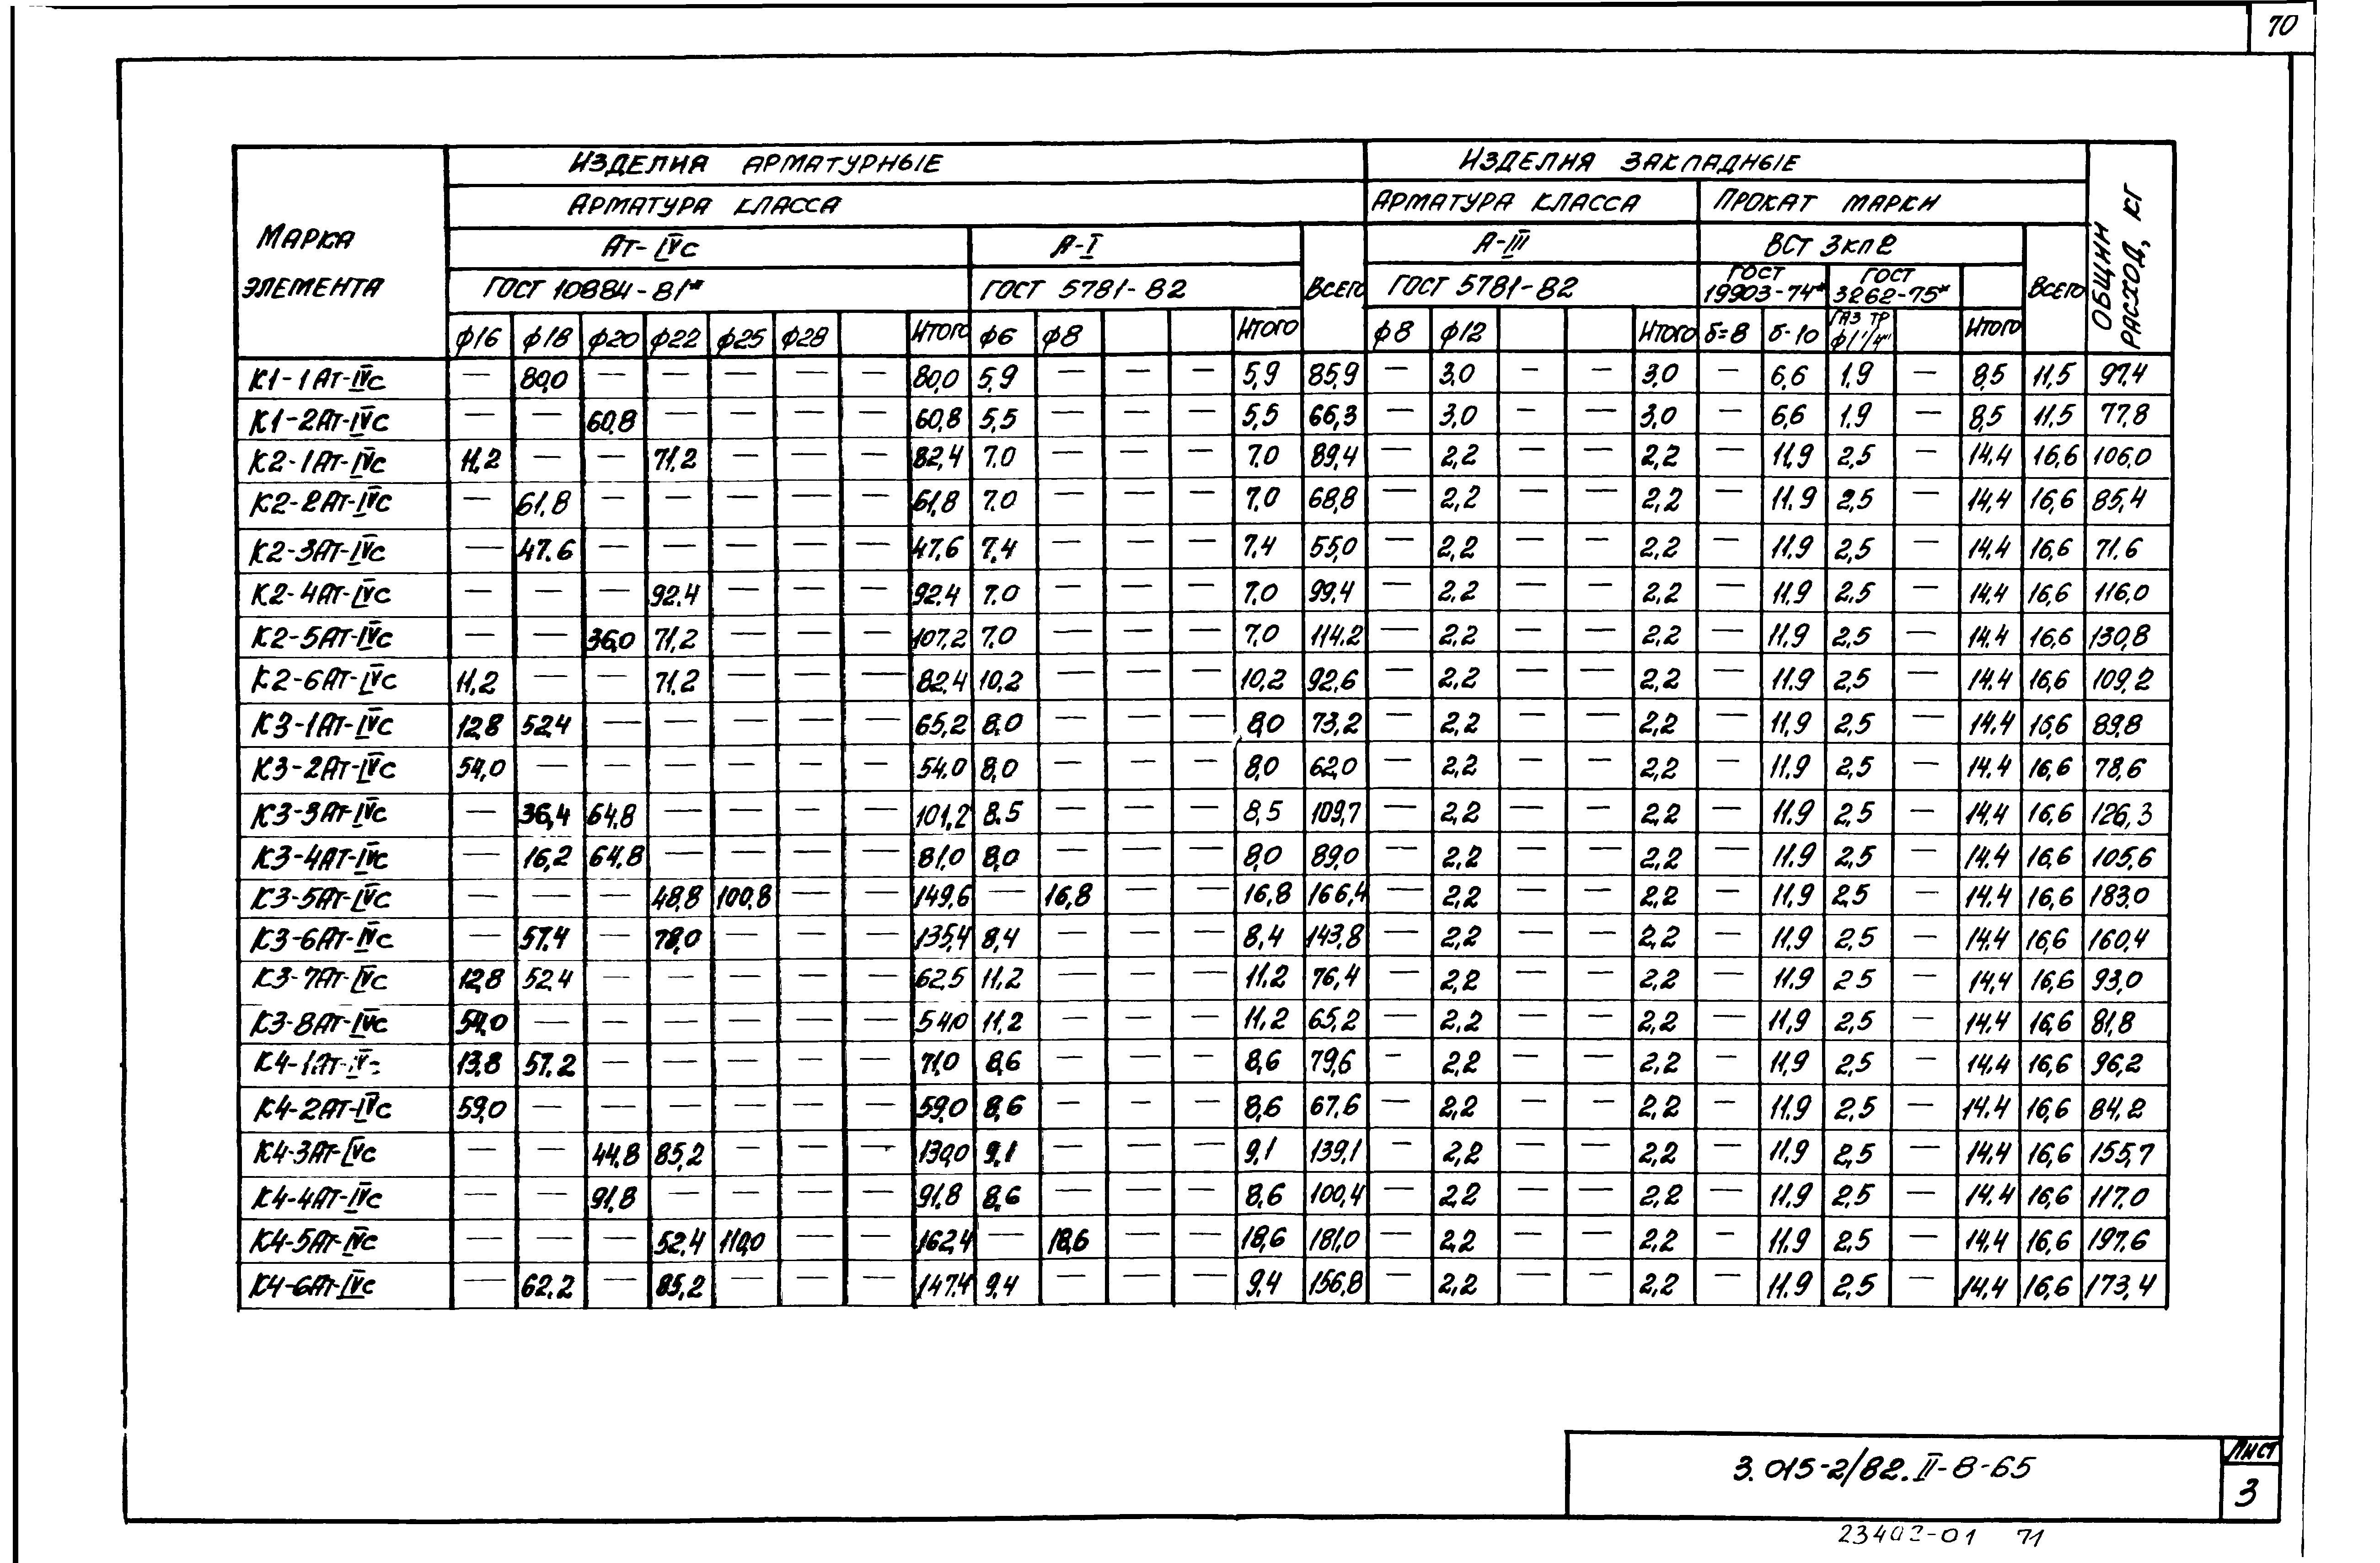 70
ИЗДЕЛИЯ АРМАТУРНЫЕ ИЗДЕЛИЯ ЗАКЛАДНЫЕ
АРМАТУРА КЛАССА АРМАТУРА КЛАССА ПРОКАТ МАРКИ
МАРКА ЭЛЕМЕНТА АТ-IVС А-I ВСЕГО А-III ВСТ 3КП2 ВСЕГО ОБЩИЙ РАСХОД, КГ
ГОСТ 10884-81* ГОСТ 5781-82 ГОСТ 5781-82 ГОСТ 19903-74* ГОСТ 3262-75*
ф16 ф18 ф20 ф22 ф25 ф28 ИТОГО ф6 ф8 ИТОГО ф8 ф12 ИТОГО б=8 б-10 ГАЗ ТР ф1 1/4" ИТОГО
К1-1АТ-IVС — 80,0 — — — — — 80,0 5,9 — — — 5,9 85,9 — 3,0 — — 3,0 — 6,6 1,9 — 8,5 11,5 97,4
К1-2АТ-IVС — — 60,8 — — — — 60,8 5,5 — — — 5,5 66,3 — 3,0 — — 3,0 — 6,6 1,9 — 8,5 11,5 77,8
К2-1АТ-IVС 11,2 — — 71,2 — — — 82,4 7.0 — — — 7.0 89,4 — 2,2 — — 2,2 — 11,9 2,5 — 14,4 16,6 106,0
К2-2АТ-IVС — 61,8 — — — — — 61,8 7.0 — — — 7,0 68,8 — 2,2 — — 2,2 — 11.9 2,5 — 14,4 16,6 85,4
К2-3АТ-IVС — 47.6 — — — — — 47,6 7,4 — — — 7,4 55,0 — 2,2 — — 2,2 — 11,9 2,5 — 14,4 16,6 71,6
К2-4АТ-IVС — — — 92.4 — — — 92,4 7.0 — — — 7,0 99,4 — 2,2 — — 2,2 — 11,9 2,5 — 14,4 16,6 116,0
К2-5АТ-IVС — — 36,0 71,2 — — — 107,2 7,0 — — — 7,0 114,2 — 2,2 — — 2,2 — 11,9 2,5 — 14,4 16,6 130,8
К2-6АТ-IVС 11,2 — — 71,2 — — — 82,4 10,2 — — — 10,2 92,6 — 2,2 — — 2,2 — 11,9 2,5 — 14,4 16,6 109,2
К3-1АТ-IVС 12,8 52,4 — — — — — 65,2 8,0 — — — 8,0 73,2 — 2,2 — — 2,2 — 11,9 2,5 — 14,4 16,6 89,8
К3-2АТ-IVС 54,0 — — — — — — 54,0 8,0 — — — 8,0 62,0 — 2,2 — — 2,2 — 11,9 2,5 — 14,4 16,6 78,6
К3-3АТ-IVС — 36,4 64,8 — — — — 101,2 8.5 — — — 8,5 109,7 — 2,2 — — 2,2 — 11,9 2,5 — 14,4 16,6 126,3
К3-4АТ-IVС — 16,2 64,8 — — — — 81,0 8,0 — — — 8,0 89,0 — 2,2 — — 2,2 — 11,9 2,5 — 14,4 16,6 105,6
К3-5АТ-IVС — — — 48,8 100,8 — — 149,6 — 16,8 — — 16,8 166,4 — 2,2 — — 2,2 — 11,9 2,5 — 14,4 16,6 183,0
К3-6АТ-IVС — 57,4 — 78,0 — — — 135,4 8,4 — — — 8,4 143,8 — 2,2 — — 2,2 — 11,9 2,5 — 14,4 16,6 160,4
К3-7АТ-IVС 12,8 52,4 — — — — — 62,5 11,2 — — — 11,2 76,4 — 2,2 — — 2,2 — 11,9 2 5 — 14,4 16,6 93,0
К3-8АТ-IVС 54,0 — — — — — — 54,0 11,2 — — — 11,2 65,2 — 2,2 — — 2,2 — 11,9 2,5 — 14,4 16,6 81,8
К4-1АТ-IVС 13,8 57.2 — — — — — 71,0 8,6 — — — 8,6 79,6 — 2,2 — — 2,2 — 11,9 2,5 — 14,4 16,6 96,2
К4-2АТ-IVС 59,0 — — — — — — 59,0 8,6 — — — 8,6 67,6 — 2,2 — — 2,2 — 11,9 2,5 — 14.4 16,6 84,2
К4-3АТ-IVС — — 44,8 85,2 — — — 130,0 9,1 — — — 9,1 139,1 — 2,2 — — 2,2 — 11,9 2,5 — 14,4 16,6 155,7
К4-4АТ-IVС — — 91,8 — — — — 91,8 8,6 — — — 8,6 100,4 — 2,2 — — 2,2 — 11,9 2,5 — 14,4 16,6 117,0
К4-5АТ-IVС — — — 52,4 110,0 — — 162,4 — 18,6 — — 18,6 181,0 — 2,2 — — 2,2 — 11,9 2,5 — 14,4 16,6 197,6
К4-6АТ-IVС — 62,2 — 85,2 — — — 147,4 9,4 — — — 9,4 156,8 — 2,2 — — 2,2 — 11,9 2,5 — 14,4 16,6 173,4
3.015-2/82.II-8-65
ЛИСТ
3
23402-01 71